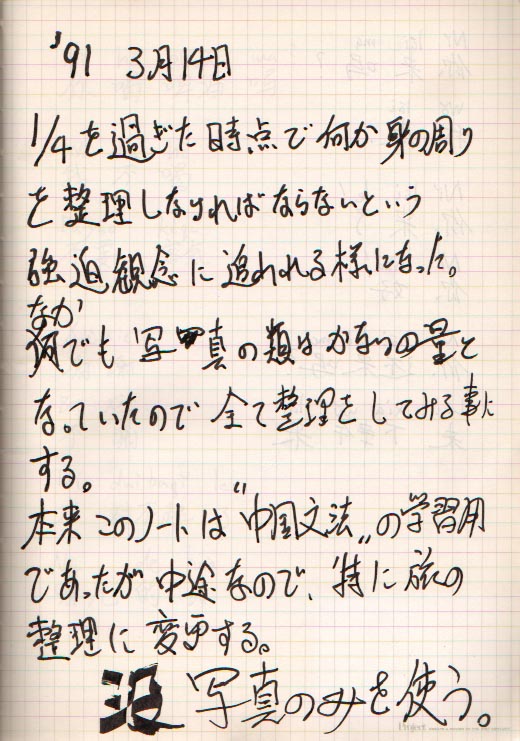 '91 3月14日
1/4を過ぎた時点で何か身の周り
を整理しなければならないという
強迫観念に追われる様になった。
なか
でも写真の類はかなりの量と
なっていたので全て整理をしてみる事に
する。
本来このノートは〝中国文法〟の学習用
であったが中途なので、特に旅の
整理に変更する。
没写真のみを使う。
Project